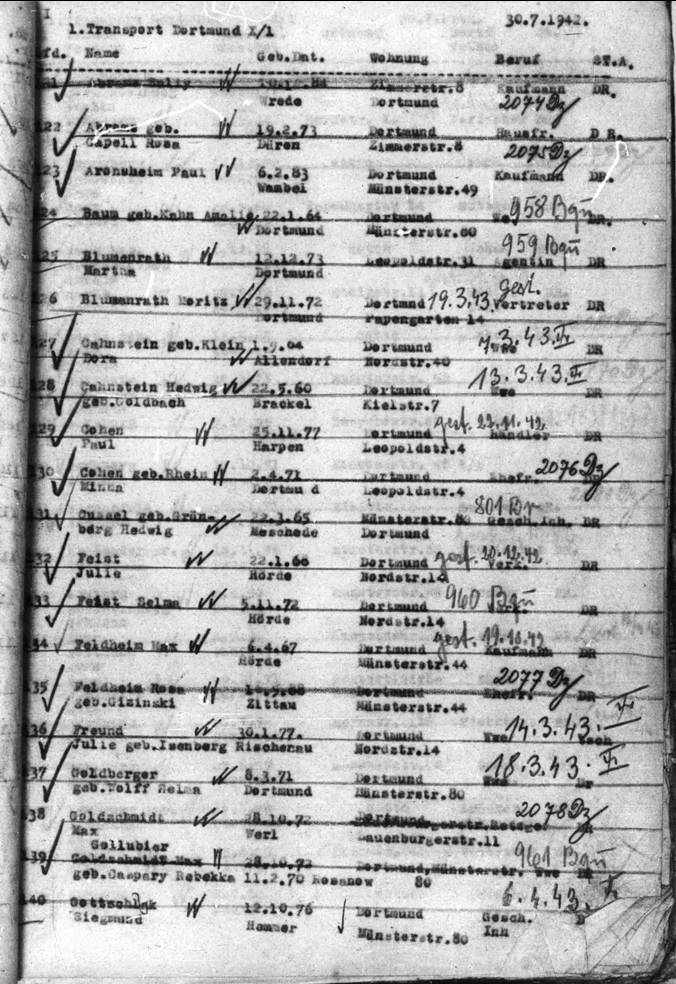 I
30.7.1942.
1.Transport Dortmund X/1
fd. Name Geb.Dat. Wohnung Beruf ST.A.
Abrams Sally Zimmerstr.8 Kaufmann DR.
Wrede Dortmund 2074 Dz
22 Abrams geb. 19.2.73 Dortmund Hausfr. D R.
Capell Rosa Düren Zimmerstr.8 2075 Dz
23 Aronsheim Paul 6.2.83 Dortmund Kaufmann DR.
Wambel Münsterstr.49
24 Baum geb.Kahn Amalie 22.1.64 Dortmund 958 Bgü DR.
Dortmund Münsterstr.80
959 Bgü
25 Blumenrath 12.12.73 Leopoldstr.31 Agentin DR
Martha Dortmund
26 Blumenrath Moritz 29.11.72 Dortmund 19.3.43 gest. Vertreter DR
Dortmund Papengarten 14
27 Cahnstein geb.Klein 1.9.04 Dortmund 3.43 DR
Dora Allendorf Nordstr.40
28 Cahnstein Hedwig 22.5.60 Dortmund 13.3.43 Wwe DR
geb.Goldbach Brackel Kielstr.7
129 Cohen 25.11.77 Dortmund gest. 23.11.42 Händler DR
Paul Harpen Leopoldstr.4
130 Cohen geb.Rhein 2.4.71 Dortmund Ehefr. 2076 Dz
Minna Dortmu d Leopoldstr.4
801 Br
131 Cussel geb.Grün- 22.3.65 Münsterstr.80 Gesch.Inh. DR
berg Hedwig Meschede Dortmund
132 Feist 22.1.66 Dortmund gest. 20.12.42 Verk. DR
Julie Hörde Nordstr.14
133 Feist Selma 5.11.72 Dortmund 960 Bgü DR
Hörde Nordstr.14
134 Feldheim Max 6.4.67 Dortmund gest. 19.10.42 Kaufmann DR
Hörde Münsterstr.44
2077 Dz
135 Feldheim Rosa Dortmund Ehefr. DR
geb.Gizinski Zittau Münsterstr.44
136 Freund 30.1.77. Dortmund Wwe 14.3.43.
Julie geb.Isenberg Rischenau Nordstr.14
137 Goldberger 8.3.71 Dortmund Wwe 18.3.43 Dr
geb.Wolff Helma Dortmund Münsterstr.80
138 Goldschmidt 28.10.72 Dortmund 2078 Dz
Max Werl Lauenburgerstr.11
Gollubier 961 Bgü
139 Goldschmidt Max 28.10.72 Dortmund,Münsterstr. Wwe DR
geb.Caspary Rebekka 11.2.70 Rosanow 80
140 Gottschalk 12.10.76 Dortmund Gesch. 4.43.
Siegmund Hommer Münsterstr.80 Inh